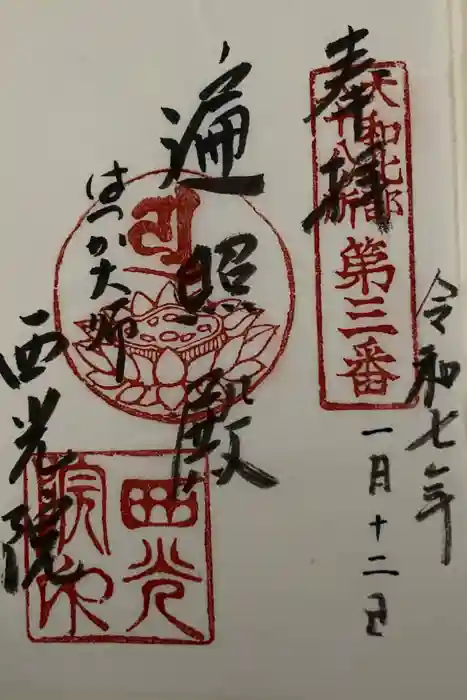 奉拝
大和北部
十八所
第三番
令和七年
一月十二日
遍照殿
はつか大師
西光院
西光
院印